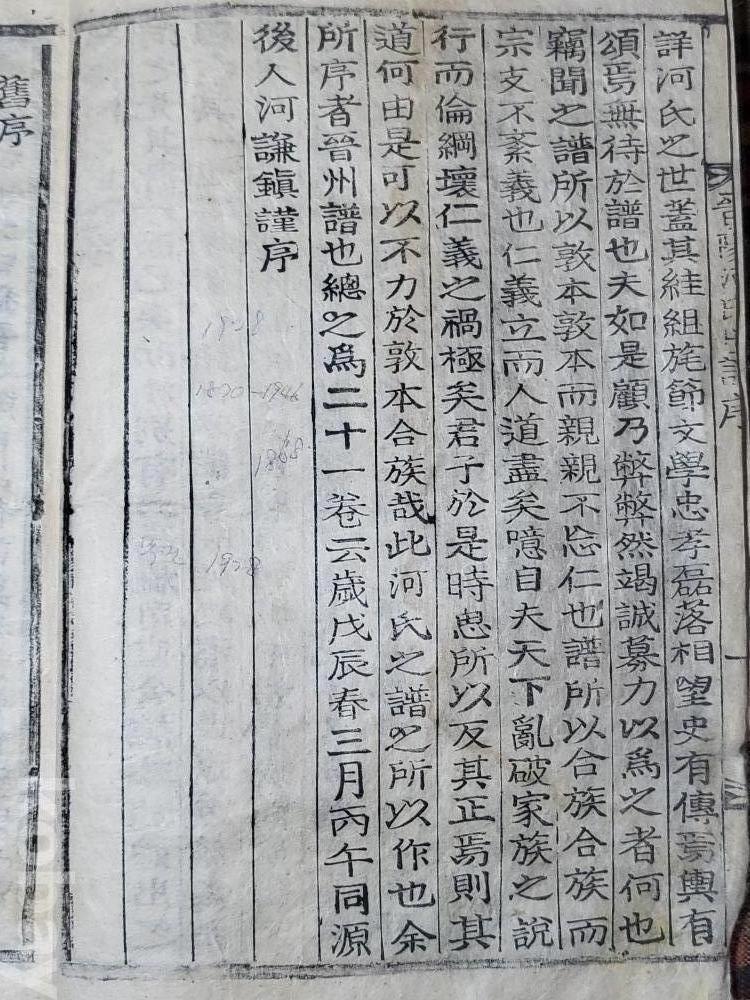 詳河氏之世蓋其絓組旄節文學忠孝磊落相望史有傳焉輿有
頌焉無待於譜也夫如是顧乃弊弊然竭誠募力以爲之者何也
竊聞之譜所以敦本敦本而親親不忘仁也譜所以合族合族而
宗支不紊義也仁義立而人道盡矣噫自夫天下亂破家族之說
行而倫綱壞仁義之禍極矣君子於是時思所以反其正焉則其
道何由是可以不力於敦本合族哉此河氏之譜之所以作也余
所序者晉州譜也總之爲二十一卷云歲戊辰春三月丙午同源
後人河謙鎭謹序
1928
1870-1946
1868
1928
舊序